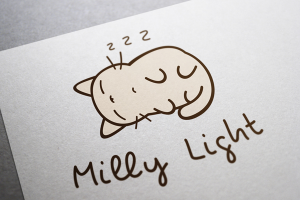 z z z
Milly Light